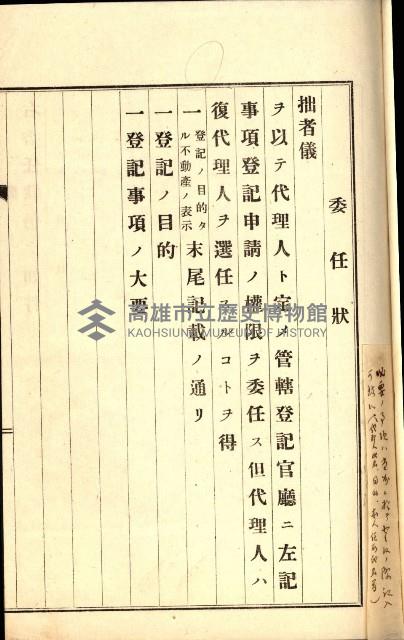 委任狀
拙者儀
ヲ以テ代理人ト定メ管轄登記官廳ニ左記
事項登記申請ノ權限ヲ委任ス但代理人ハ
復代理人ヲ選任スルコトヲ得
一 登記ノ目的タル不動產ノ表示 末尾記載ノ通リ
一 登記ノ目的
一 登記事項ノ大要
高雄市立歷史博物館
KAOHSIUNG MUSEUM OF HISTORY